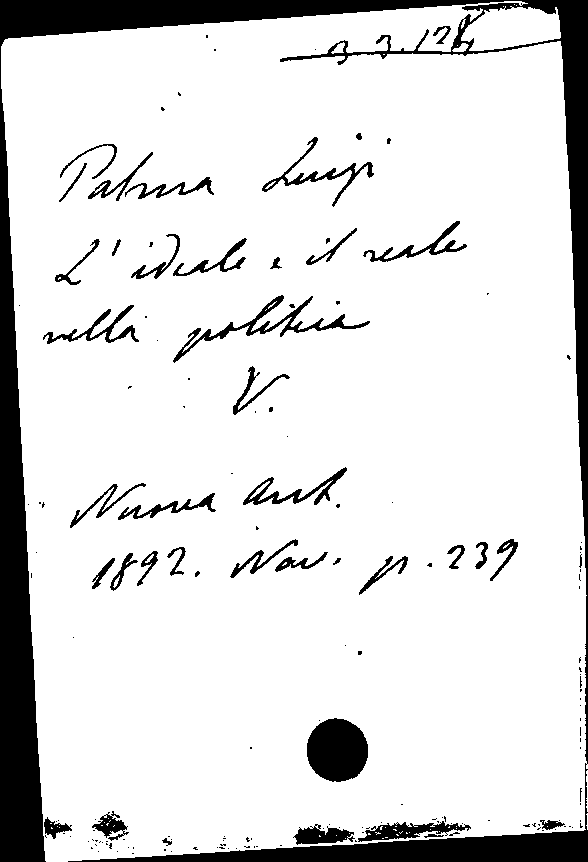 3.3.12
Palma Luigi
L'ideale e il reale
nella politica
V.
Nuova Ant.
1892. Nov. p. 239